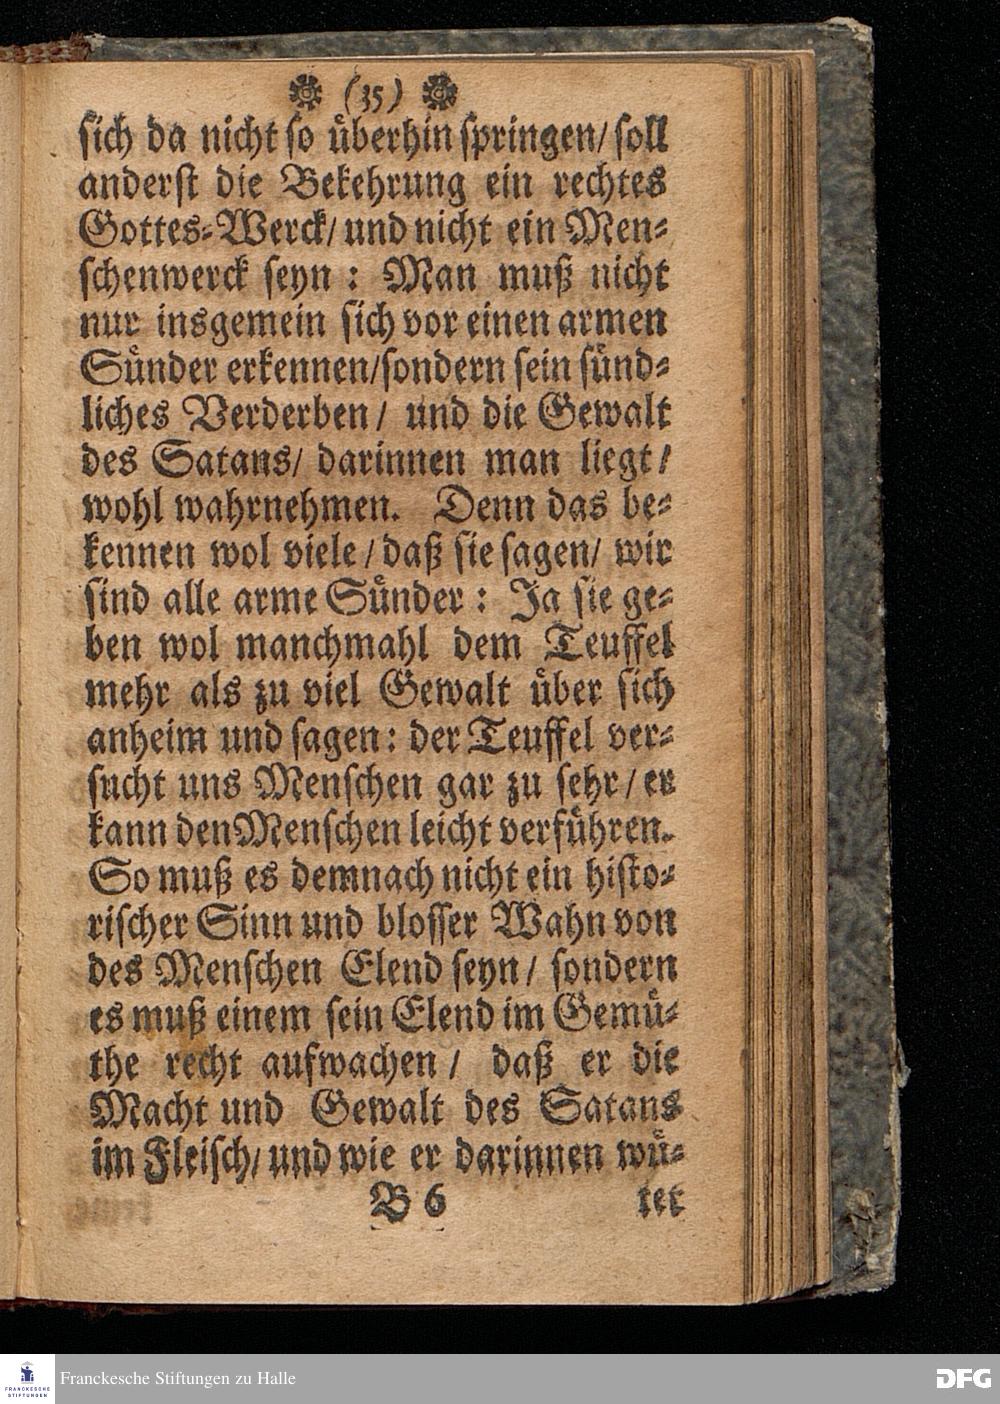 (35)
sich da nicht so überhin springen/ soll
anderst die Bekehrung ein rechtes
Gottes-Werck/ und nicht ein Men-
schenwerck seyn : Man muß nicht
nur insgemein sich vor einen armen
Sünder erkennen/sondern sein sünd-
liches Verderben/ und die Gewalt
des Satans/ darinnen man liegt/
wohl wahrnehmen. Denn das be-
kennen wol viele/daß sie sagen/ wir
sind alle arme Sünder : Ja sie ge-
ben wol manchmahl dem Teuffel
mehr als zu viel Gewalt über sich
anheim und sagen: der Teuffel ver-
sucht uns Menschen gar zu sehr/er
kann den Menschen leicht verführen.
So muß es demnach nicht ein histo-
rischer Sinn und blosser Wahn von
des Menschen Elend seyn/ sondern
es muß einem sein Elend im Gemü-
the recht aufwachen/ daß er die
Macht und Gewalt des Satans
im Fleisch/ und wie er darinnen wü-
B 6 tet
FRANCKESCHE STIFTUNGEN
Franckesche Stiftungen zu Halle
DFG